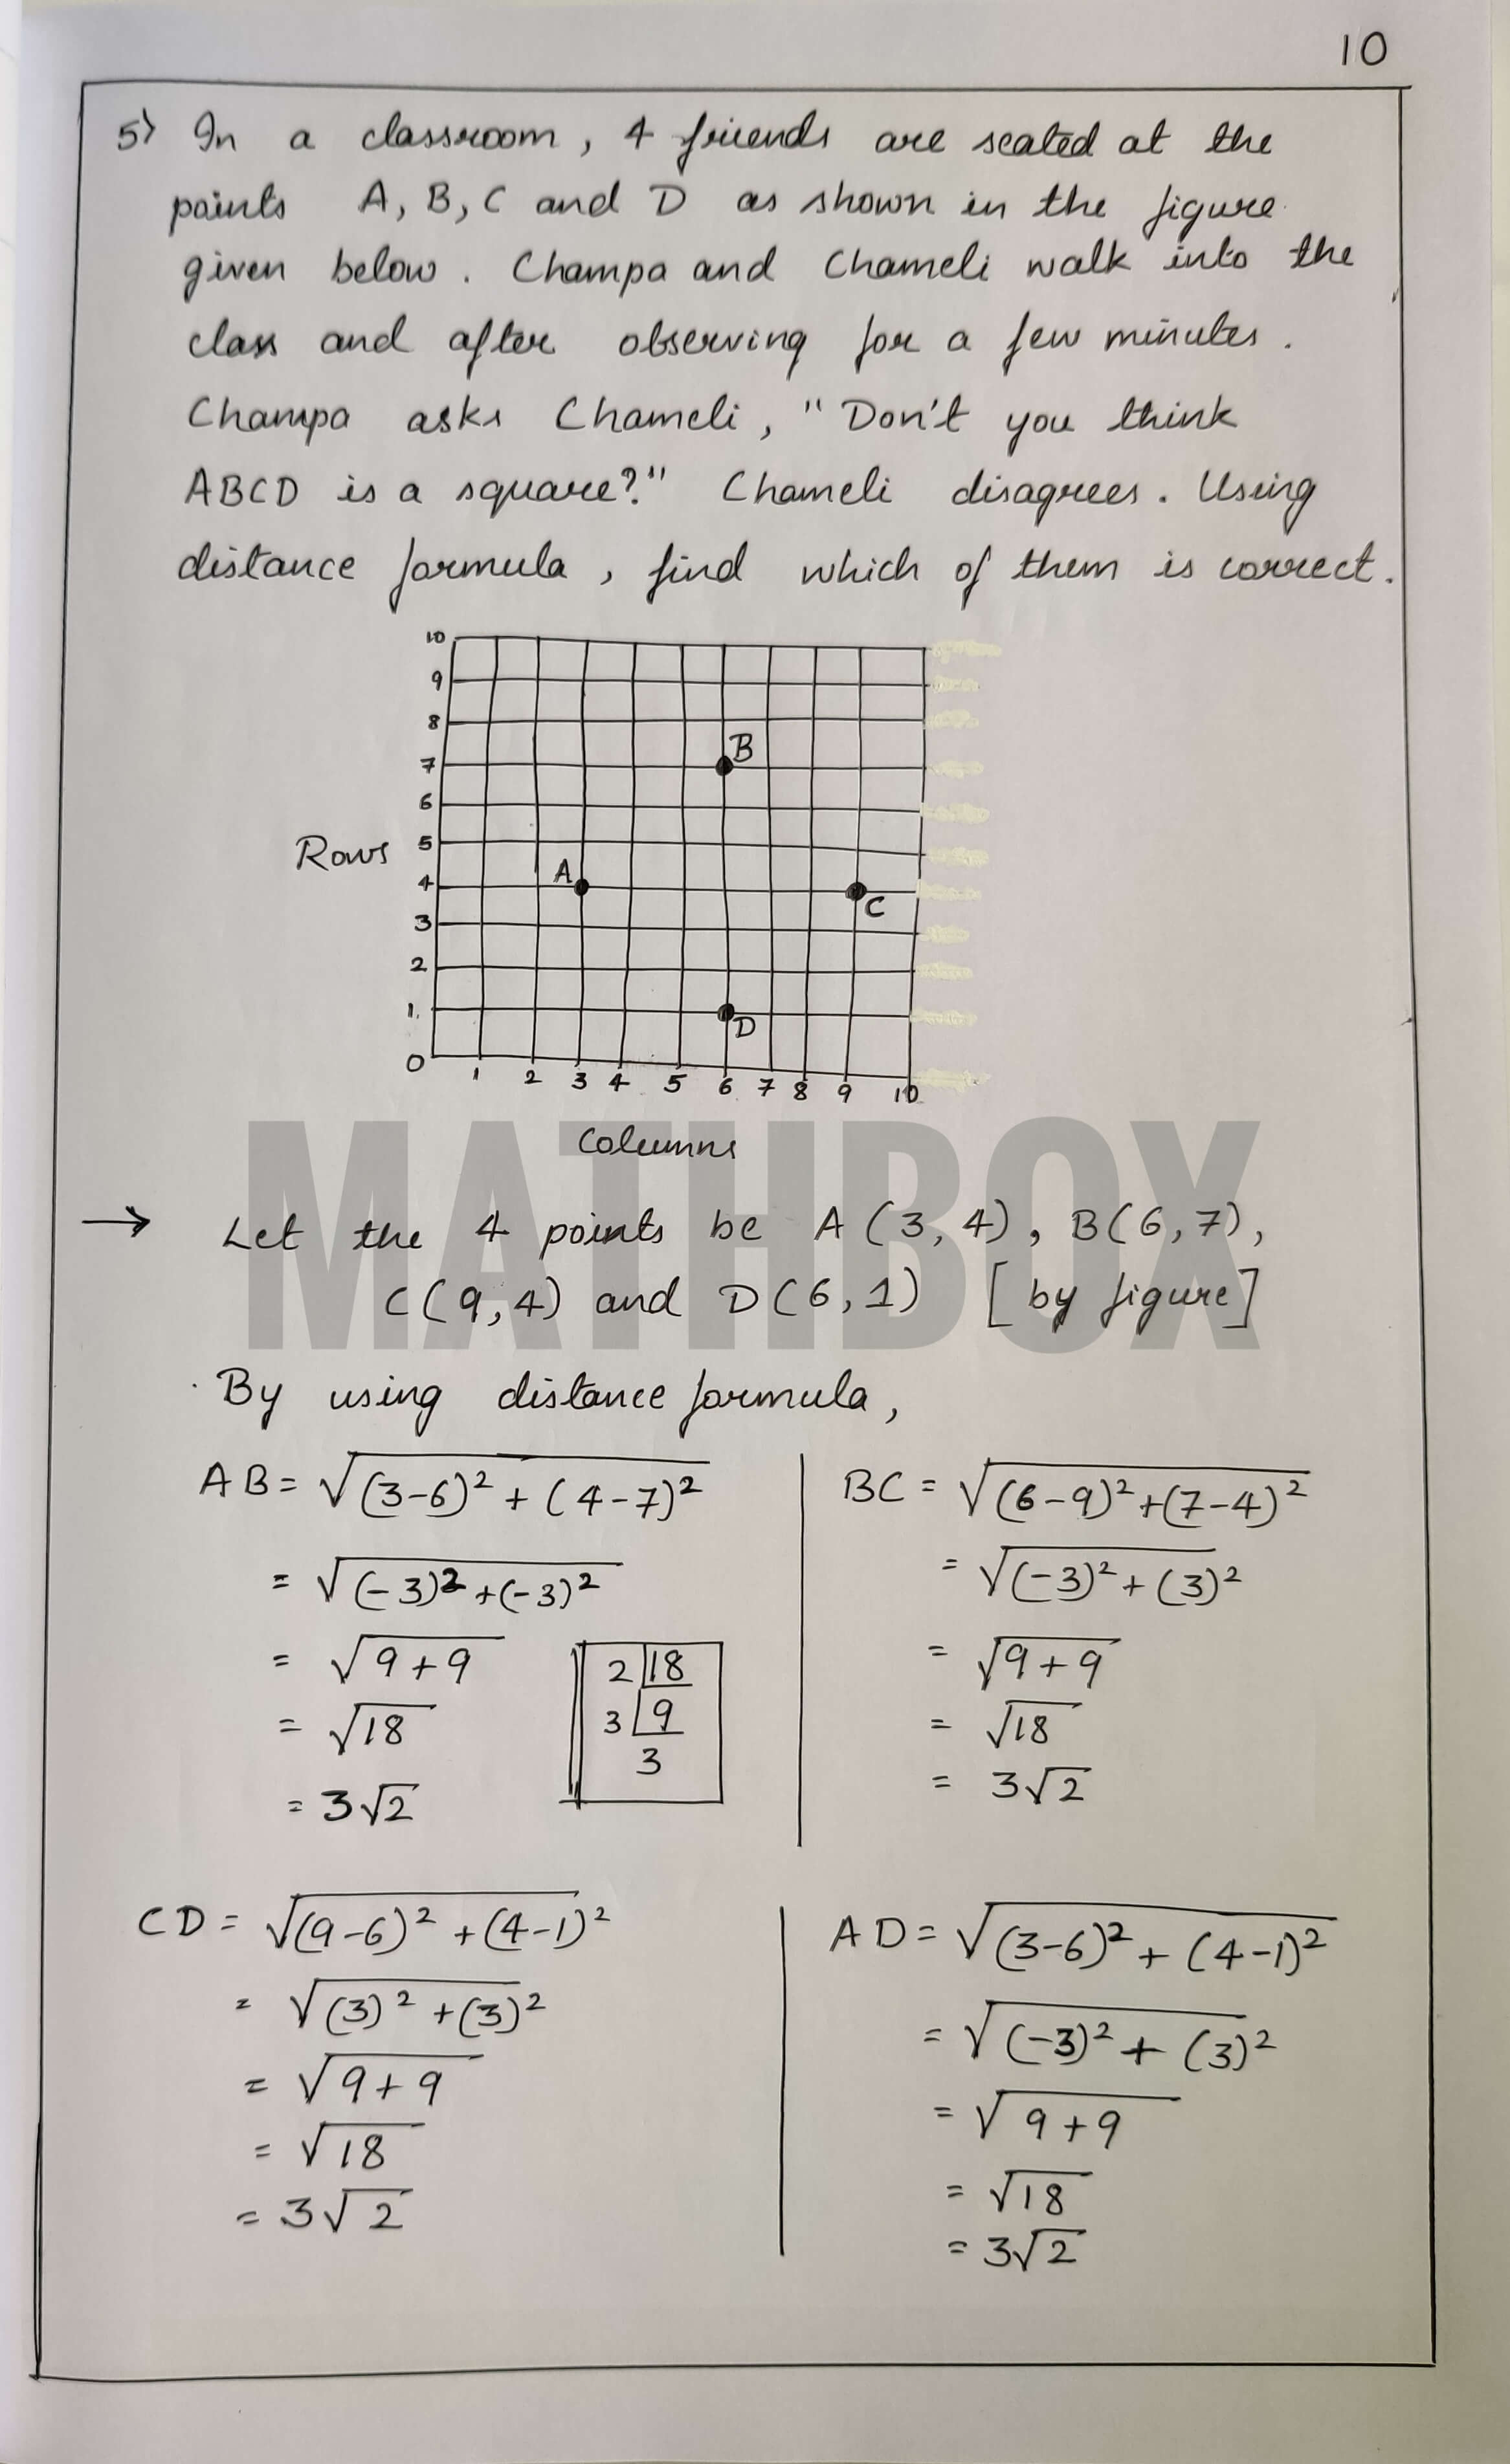 10
5) In a classroom, 4 friends are seated at the
points A, B, C and D as shown in the figure
given below. Champa and Chameli walk into the
class and after observing for a few minutes.
Champa asks Chameli, "Don't you think
ABCD is a square?" Chameli disagrees. Using
distance formula, find which of them is correct.
10
9
8
7
6
5
4
3
2
1
0
Rows
B
A
C
D
1 2 3 4 5 6 7 8 9 10
Columns
MATHBOX
→ Let the 4 points be A (3, 4), B(6,7),
C(9,4) and D(6,1) [by figure]
By using distance formula,
AB = √(3-6)² + (4-7)²
= √(-3)² + (-3)²
= √9+9
= √18
= 3√2
2 | 18
3 | 9
3
BC = √(6-9)² + (7-4)²
= √(-3)² + (3)²
= √9+9
= √18
= 3√2
CD = √(9-6)² + (4-1)²
= √(3)² + (3)²
= √9+9
= √18
= 3√2
AD = √(3-6)² + (4-1)²
= √(-3)² + (3)²
= √9+9
= √18
= 3√2